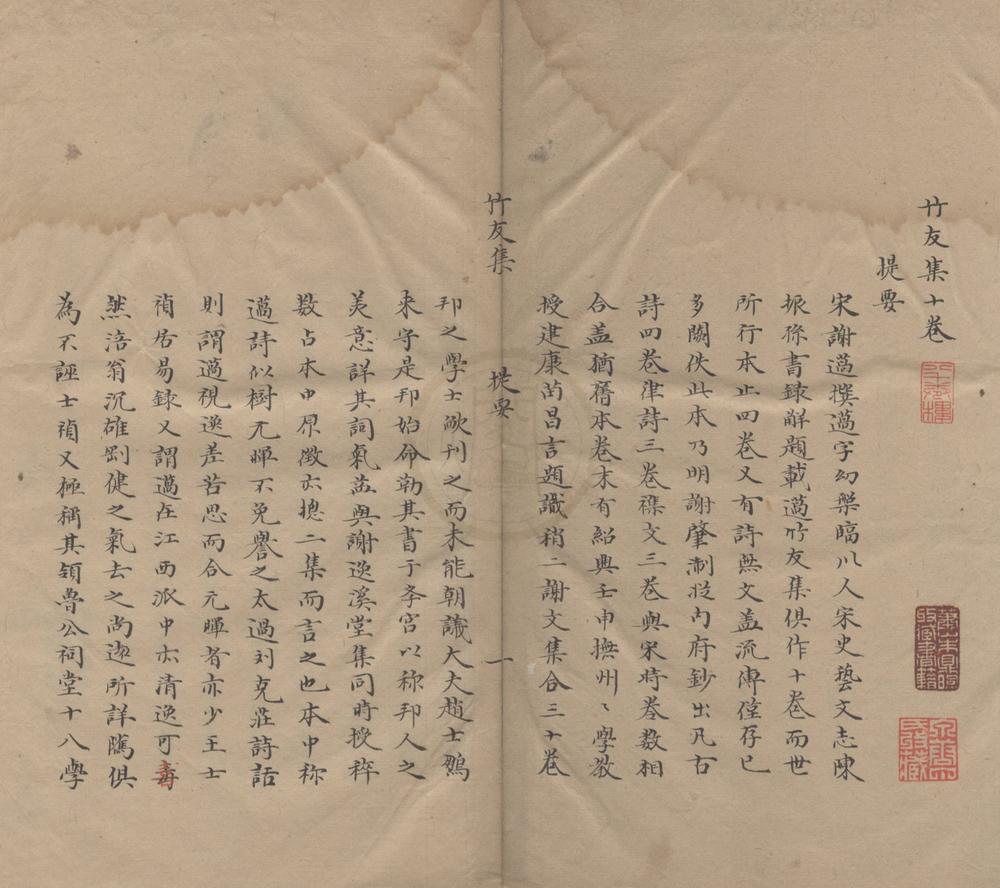 竹友集十卷
提要
宋謝邁撰邁字幼槃臨川人宋史藝文志陳
振孫書録解題載邁竹友集俱作十卷而世
所行本止四卷又有詩無文盖流傳僅存已
多闕佚此本乃明謝肇淛從内府鈔出凡古
詩四卷律詩三卷襍文三卷與宋時卷数相
合盖猶舊本卷末有紹興壬申撫州〻學教
授建康苗昌言題識稍二謝文集合三十卷
竹友集
提要
一
邦之學士欲刊之而未能朝議大夫趙士鵬
来守是邦始命勒其書于学宫以称邦人之
美意詳其詞氣葢與謝逸溪堂集同時授稡
数占本中原徴亦摠二集而言之也本中称
邁詩似樹元暉不免譽之太過刘克莊詩話
則謂邁視逸差苦思而合元暉者亦少王士
禎居易録又謂邁在江西派中亦清逸可毒
然涪翁沉雄剛健之氣去之尚遠所詳隲俱
為不誣士禎又極稱其領魯公祠堂十八學